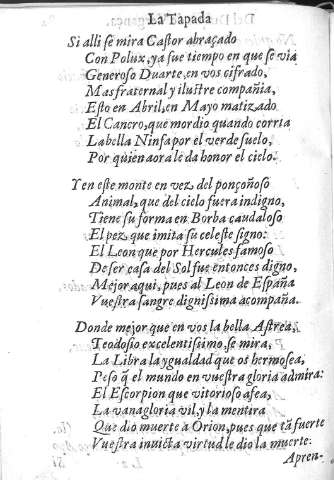 La Tapada
Si alli se mira Castor abraçado
Con Polux, ya fue tiempo en que se via
Generoso Duarte, en vos cifrado,
Mas fraternal y ilustre compañia,
Esto en Abril, en Mayo matizado
El Cancro, que mordio quando corria
La bella Ninfa por el verde suelo,
Por quien aora le da honor el cielo.
Y en este monte en vez del ponçoñoso
Animal, que del cielo fuera indigno,
Tiene su forma en Borba caudaloso
El pez que imita su celeste signo:
El Leon que por Hercules famoso
De ser casa del Sol fue entonces digno,
Mejor aqui, pues al Leon de España
Vuestra sangre dignissima acompaña.
Donde mejor que en vos la bella Astrea,
Teodosio excelentissimo, se mira,
La Libra la ygualdad que os hermosea,
Peso q̃ el mundo en vuestra gloria admira:
El Escorpion que vitorioso afea,
La vanagloria vil, y la mentira
Que dio muerte a Orion, pues que tã fuerte
Vuestra invicta virtud le dio la muerte:
Apren-